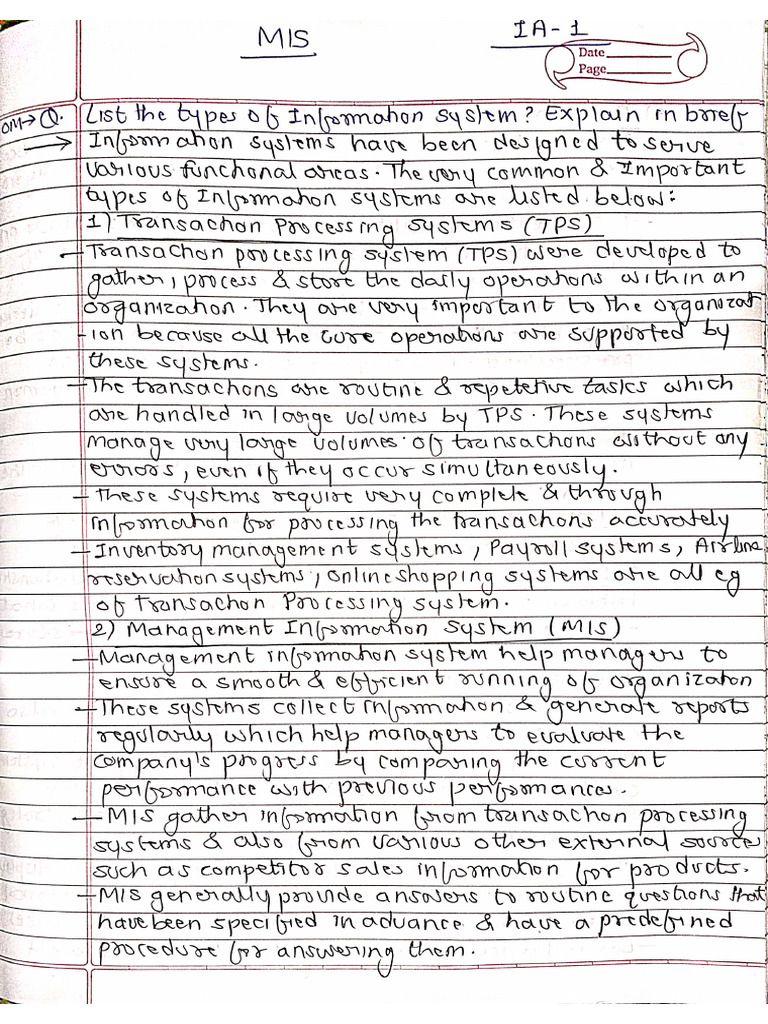 MIS
IA-1
Date
Page
Q. List the types of Information system? Explain in brief
→ Information systems have been designed to serve
various functional areas. The very common & Important
types of Information systems are listed below:
1) Transaction Processing systems (TPS)
- Transaction processing system (TPS) were developed to
gather, process & store the daily operations within an
organization. They are very important to the organizat
-ion because all the core operations are supported by
these systems.
- The transactions are routine & repetetive tasks which
are handled in large volumes by TPS. These systems
manage very large volumes of transactions without any
errors, even if they occur simultaneously.
- These systems require very complete & through
information for processing the transactions accurately
- Inventory management systems, Payroll systems, Airline
reservation systems, online shopping systems are all eg
of transaction Processing system.
2) Management Information System (MIS)
- Management information system help managers to
ensure a smooth & efficient running of organization
- These systems collect information & generate reports
regularly which help managers to evaluate the
company's progress by comparing the current
performance with previous performances.
- MIS gather information from transaction processing
systems & also from various other external sources
such as competitor sales information for products.
- MIS generally provide answers to routine questions that
have been specified in advance & have a predefined
procedure for answering them.